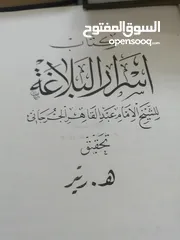 السوق المفتوح
opensooq.com
كتاب
أسرار البلاغة
للشيخ الإمام عبد القاهر الجرجاني
تحقيق
هـ. ريتر